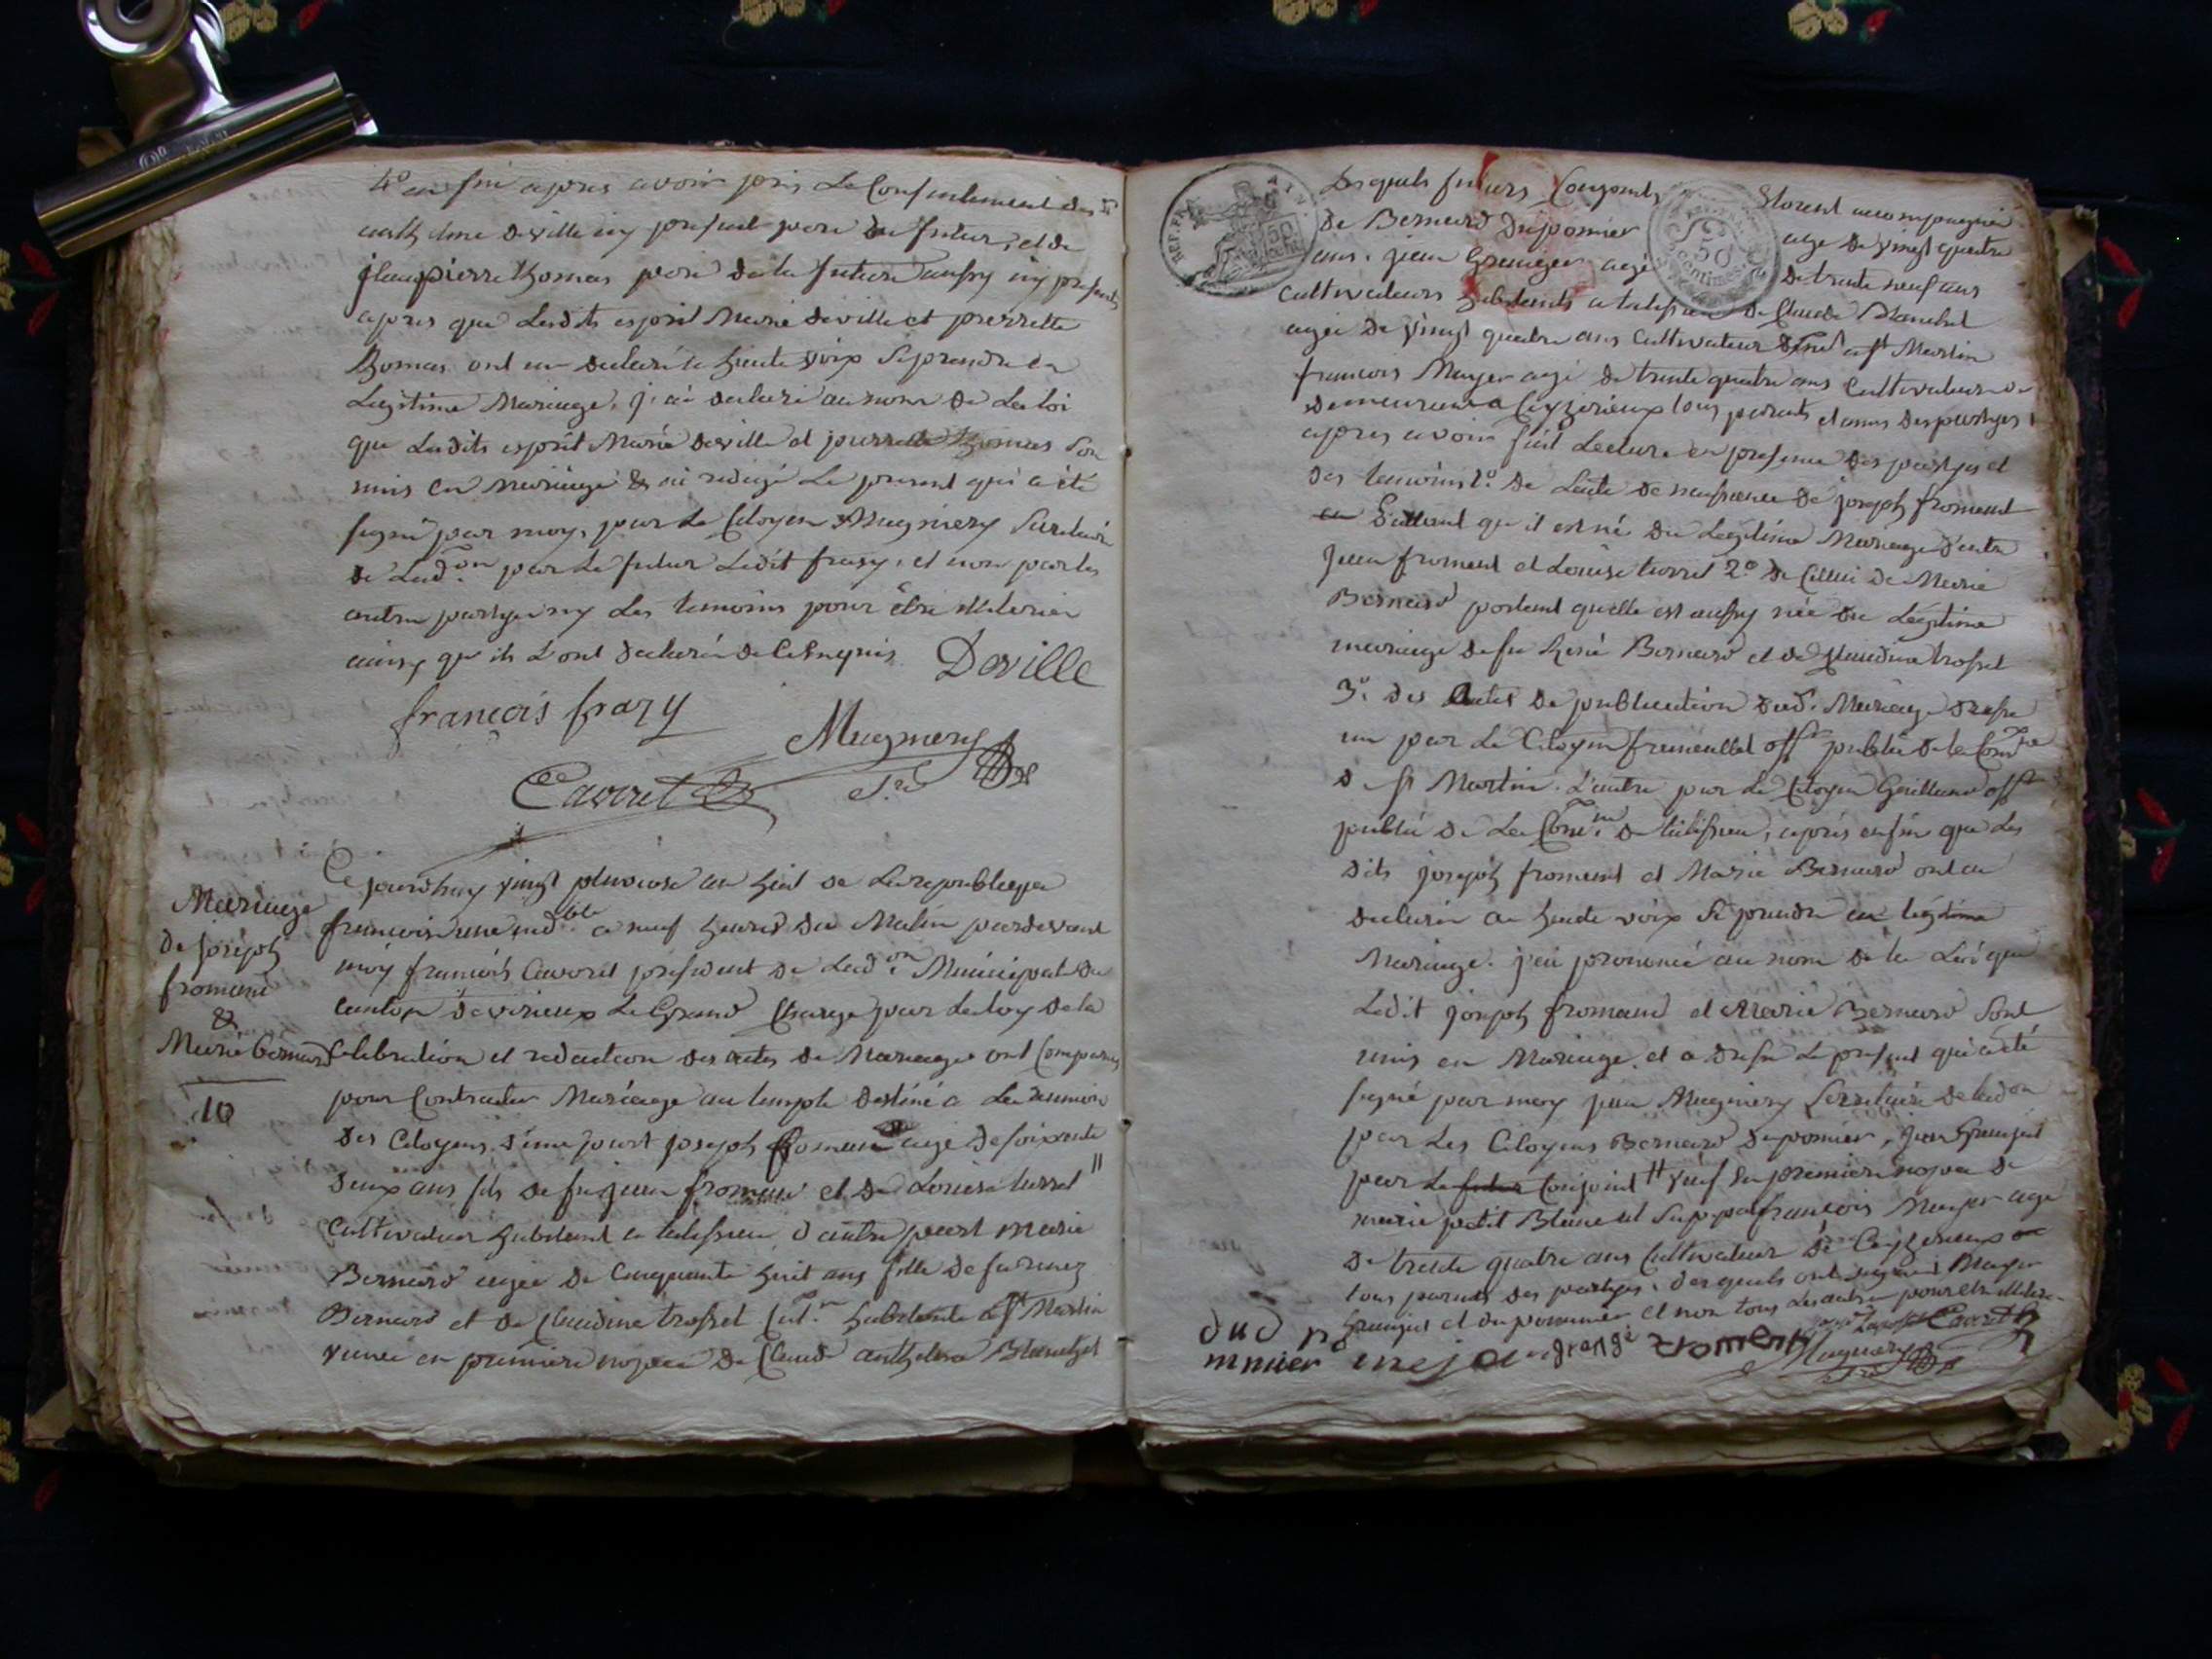 4° enfin apres avoir pris Le Consentement des
anthelme deville icy present pere du futur, et de
Jean pierre thomas pere de la future aussy icy présent
apres que Lesdits esprit Marie deville et pierrette
thomas ont eu declaré a haute voix Se prendre en
Legitime Mariage, j'ai declaré au nom de La Loi
que Lesdits esprit Marie deville et pierrette thomas Son
unis en Mariage & ai redigé Le present qui a été
signé par moy, par Le Citoyen Mugniery Secretaire
de Lad.on par Le futur Ledit frary, et non par les
autres partyes ny Les temoins pour être illiterés
ainsy qu'ils L'ont declaré de Ce enquis Deville
françois frary
Mugniery
Cavoret
S.re
Ce jourdhuy vingt pluviose an huit de La republique
francoise une ind.ble a neuf heures du Matin pardevant
moy francois Cavoret president de Lad.on Municipale du
canton de virieux Le Grand Chargé par La loy de la
Celebration et redaction des actes de Mariages ont Comparus
pour Contracter Mariage au temple destiné a La reunion
des Citoyens, d'une part joseph froment agé de soixante
deux ans fils de fu jean froment et de Louise turrel "
Cultivateur habitant a talissieu, d'autre part Marie
Bernard agée de Cinquante huit ans fille de fu renez
Bernard et de Claudine trosset Cul.r habitante a St Martin
veuve en premiere nopces de Claude anthelme Blanchet
Mariage
de joseph
froment
&
Marie bernard
10
Lesquels futurs Conjoints Seront accompagnés
de Bernard Dupomier agé de vingt quatre
ans, jean Grenger agé de trente neuf ans
cultivateurs habitants a talissieu de Claude Blanchet
agé de vingt quatre ans Cultivateur a St Martin
francois Mayer agé de trente quatre ans Cultivateur
demeurant a Ceyzerieux tous parents et amis des partyes,
apres avoir fait Lecture en presence des partyes et
des temoins 1° de L'acte de naissance de joseph froment
portant qu'il est né du Legitime Mariage d'entre
Jean froment et Louise turrel 2° de Cellui de Marie
Bernard portant quelle est aussy née du Legitime
mariage de fu René Bernard et de Claudine trosset
3° des Actes de publication dud. Mariage dressé
un par Le Citoyen off.er public de la Com.ne
de St Martin. L'autre par Le Citoyen Guillaud off.er
public de La Com.ne de talissieu, apres enfin que Les
dits joseph froment et Marie Bernard ont eu
declaré a haute voix Se prendre en legitime
Mariage. j'ai prononcé au nom de la Loi que
Ledit joseph froment et Marie Bernard Sont
unis en Mariage. et a dressé Le present qui a été
signé par moy par Mugniery Secretaire de Lad.on
par Les Citoyens Bernard dupomier, jean Grenger
par Le futur Conjoint " veuf en premiere nopces de
marie petit Blanc et francois Mayer agé
de trente quatre ans Cultivateur de Ceyzerieux
tous parents des partyes. Lesquels ont signé Mayer
Grenger et dupommier et non tous Les autres pour etre illiteré
dud po
mmier
grange froment
Cavoret
Mugniery
S.re
REP. FRA.
50
CENT.
50
centimes